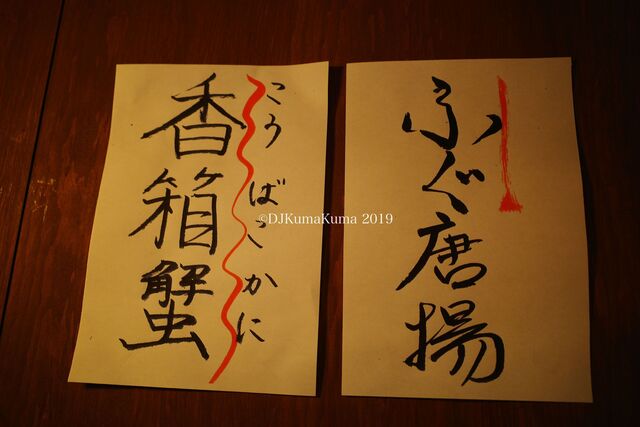 ふぐ唐揚
こうばこかに
香箱蟹
©DJKumaKuma 2019